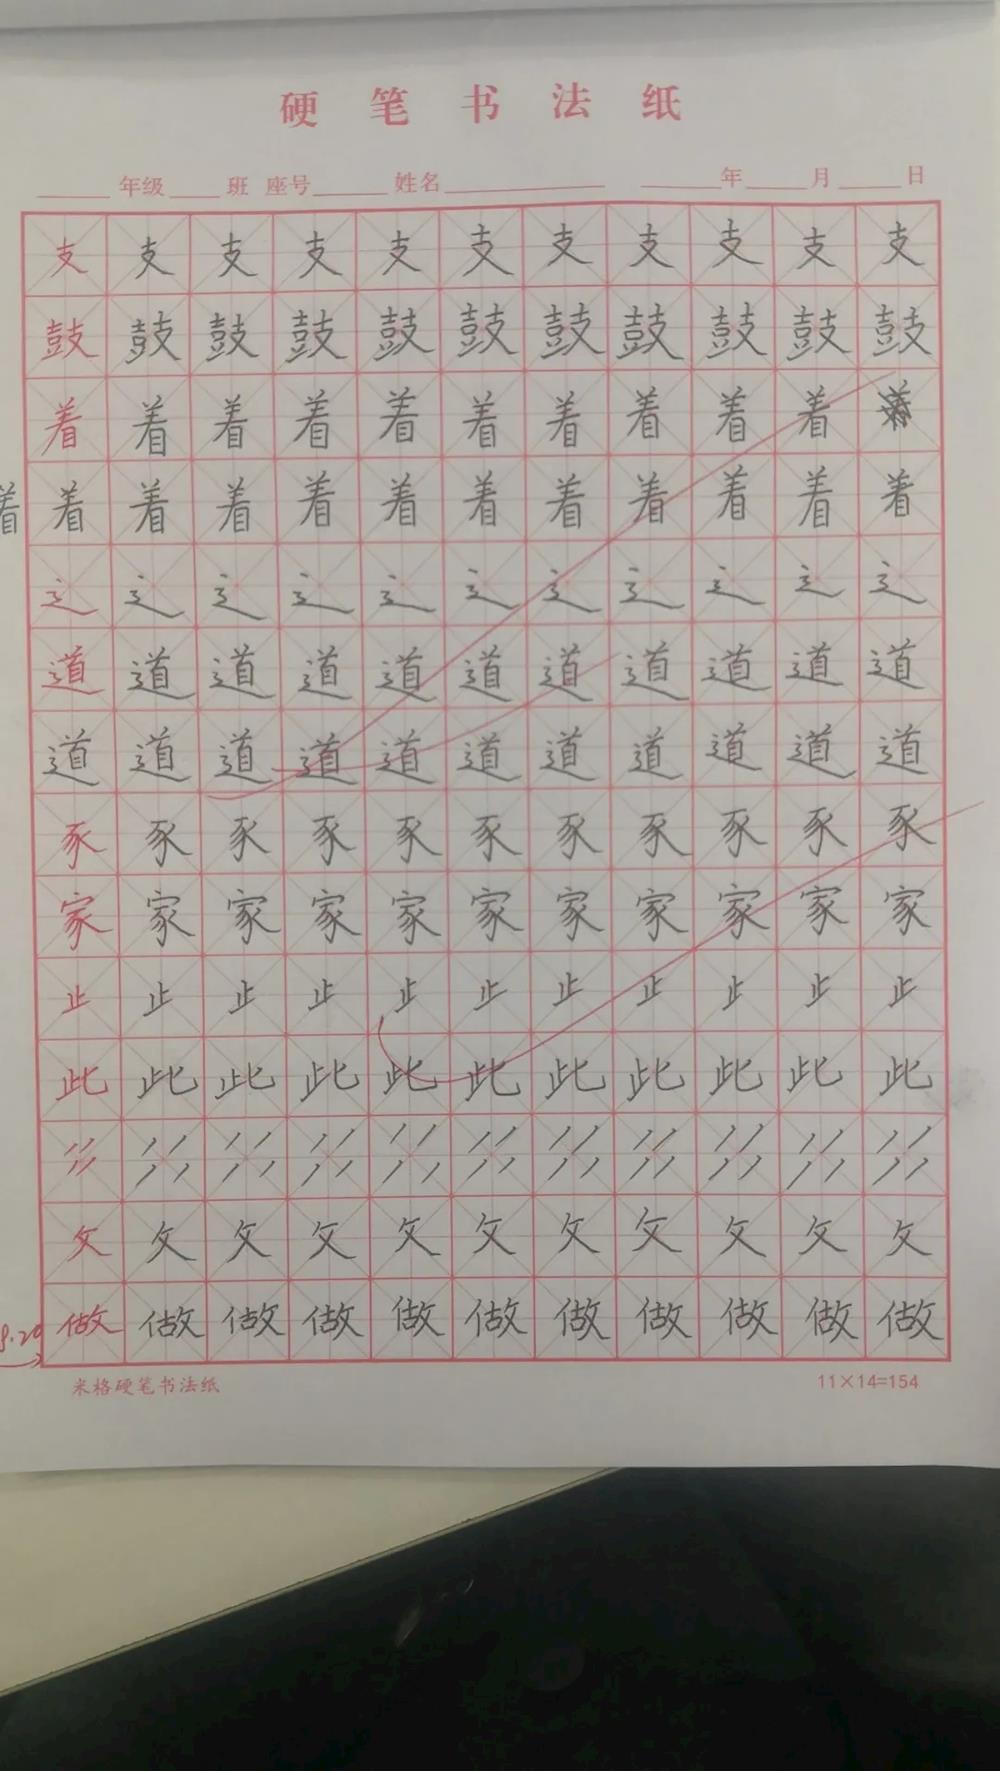 硬笔书法纸
年级 班 座号 姓名 年 月 日
支 支 支 支 支 支 支 支 支 支 支
鼓 鼓 鼓 鼓 鼓 鼓 鼓 鼓 鼓 鼓 鼓
着 着 着 着 着 着 着 着 着 着
着 着 着 着 着 着 着 着 着 着 着 着
辶 辶 辶 辶 辶 辶 辶 辶 辶 辶 辶
道 道 道 道 道 道 道 道 道 道 道
道 道 道 道 道 道 道 道 道 道 道
豕 豕 豕 豕 豕 豕 豕 豕 豕 豕 豕
家 家 家 家 家 家 家 家 家 家 家
止 止 止 止 止 止 止 止 止 止 止
此 此 此 此 此 此 此 此 此 此 此
攵 攵 攵 攵 攵 攵 攵 攵 攵 攵 攵
做 做 做 做 做 做 做 做 做 做 做
米格硬笔书法纸 11×14=154